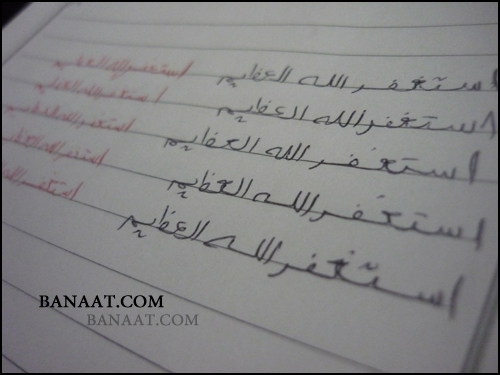 استغفر الله العظيم استغفر الله العظيم
استغفر الله العظيم استغفر الله العظيم
استغفر الله العظيم استغفر الله العظيم
استغفر الله العظيم استغفر الله العظيم
استغفر الله العظيم استغفر الله
BANAAT.COM
BANAAT.COM